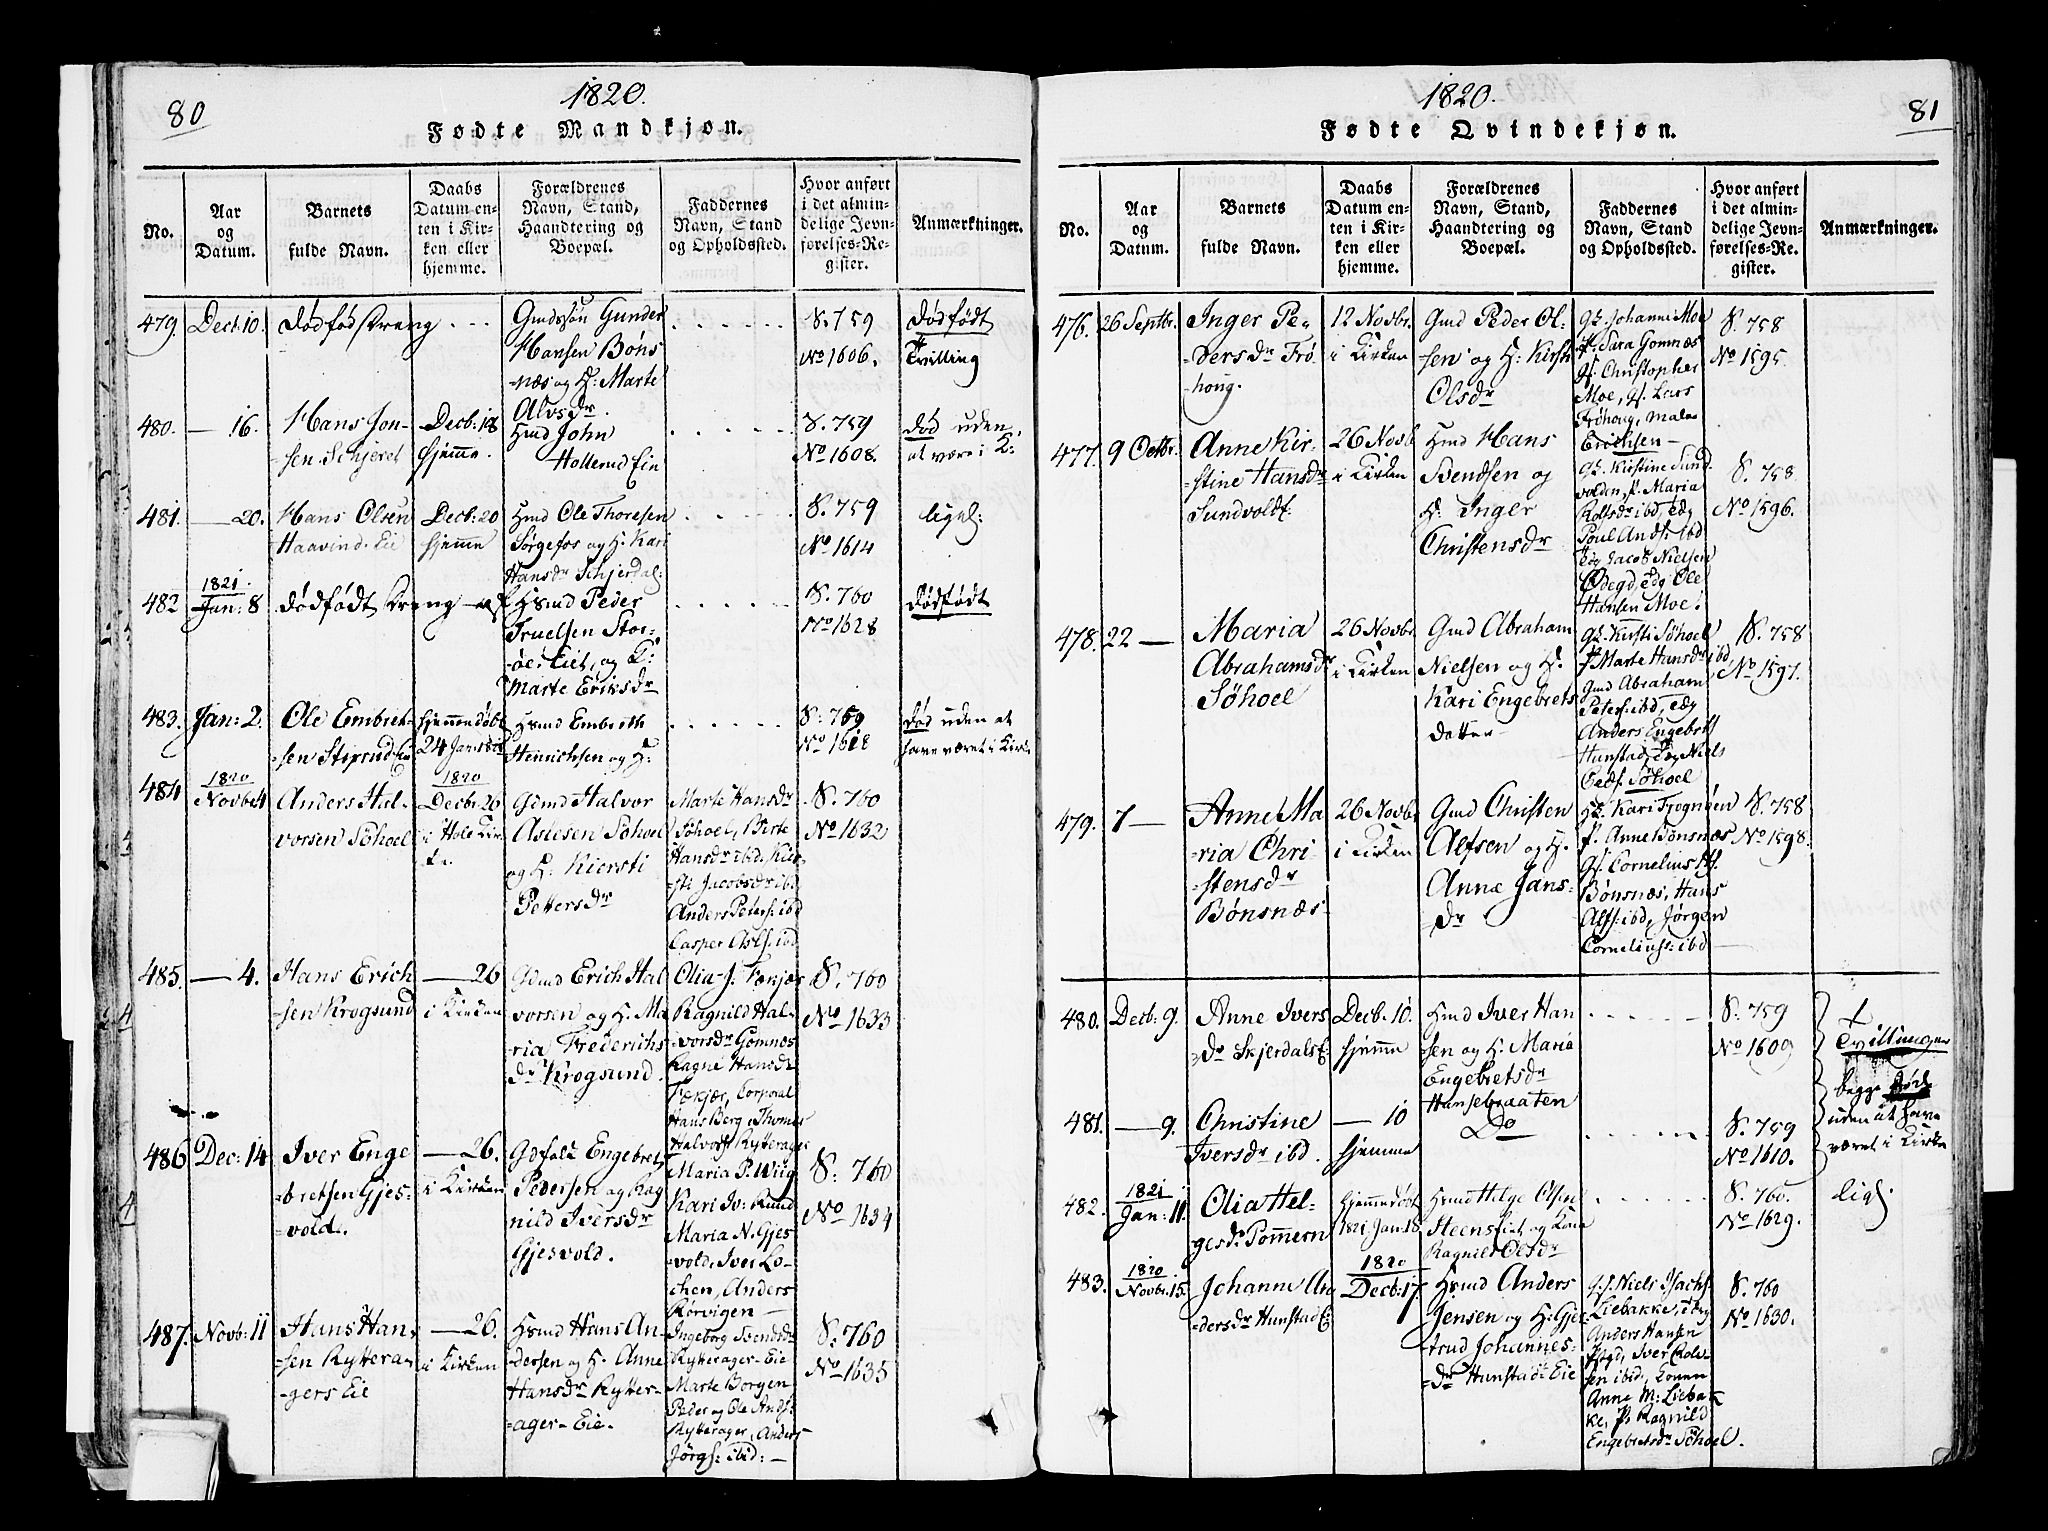 80
1820.
Fødte Mandkjøn.
No.
Aar
og
Datum.
Barnets
fulde Navn.
Daabs
Datum en-
ten i Kir-
ken eller
hjemme.
Forældrenes
Navn, Stand,
Haandtering og
Boepæl.
Faddernes
Navn, Stand
og Opholdssted.
Hvor anført
i det almin-
delige Jevn-
førelses-Re-
gister.
Anmærkninger.
479.
Decb: 10.
dödföd dreng
Gmdssön Gunder
Hansen Böns
-næs og H: Marte
Alvsdr.
S. 759
No 1606.
dödfödt
Tvilling
480.
— 16.
Hans Jon-
sen Schjeret
Decb: 18
hjemme.
Hmd John
Hollerud Ein
S. 759
No 1608.
död uden
at være i K:
481.
— 20.
Hans Olsen
Haavind. Eie
Decb: 20
hjemme
Hmd Ole Thoresen
Sörgefos og H. Kari
Hansdr Schjerdal:
S. 759
No 1614
ligel:
482
1821.
Jan: 8
dödfödt dreng — af
Hsmd Peder
Truelsen Stor-
-öe: Eiet, og K:
Marte Eriksdr
S. 760
No 1628
dödfödt
483.
Jan: 2.
Ole Embret-
-sen Stixrud Eie
hjemmedöbt
24 Jan 1821
Hsmd Embreth
Henrichsen og H:
S: 759
No 1618
död uden at
have været i Kirke
484
1820
Novbr 4
Anders Hal-
vorsen Söhoel
1820
Decbr 26
i Hole Kir-
ke.
Gdmd Halvor
Aslesen Söhoel
og H: Kiersti
Pettersdr
Marte Hansdr
Söhoel, Birte
Hansdr ibid. Kier-
sti Jacobsdr ibd
Anders Peters: ibd
Casper Asls: ibd
S. 760
No 1632
485.
— 4.
Hans Erich
-sen Krogsund
— 26
i Kirken
Gdmd Erich Hal
vorsen og H. Ma
-ria Frederichs
dr Krogsund.
Olia J. Fækjær
Ragnild Hal-
-vorsdr Gomnæs
Ragne Hansdr
Fækjær, Corporal
Hans Berg, Thomas
Halvors Rytterager
S: 760
No 1633
486
Dec: 14
Iver Enge
-bretsen Gjes-
-vold.
— 26.
i Kirken
Gdfolk Engebret
Pedersen og Rag
nild Iversdr
Gjesvold.
Maria P. Wiug
Kari Iv: Rund
Maria N. Gjes
-vold, Iver Lo-
chen, Anders
Rörvigen —
S: 760
No 1634
487.
Novb: 11
Hans Han-
-sen Ryttera-
-gers Eie
— 26.
i Kirken
Hsmd Hans An-
dersen og H. Anne
Hansdr Rytter-
-ager-Eie.
Ingeborg Svendsdr
Rytterager-Eie
Marte Borgen
Peder og Ole Ands:
Rytterager, Anders
Jörgs: ibid: —
S: 760
No 1635
1820.
81
Fødte Qvindekjøn.
No.
Aar
og
Datum.
Barnets
fulde Navn.
Daabs
Datum en-
ten i Kir-
ken eller
hjemme.
Forældrenes
Navn, Stand,
Haandtering og
Boepæl.
Faddernes
Navn, Stand
og Opholdssted.
Hvor anført
i det almin-
delige Jevn-
førelses-Re-
gister.
Anmærkninger.
476.
26 Septbr.
Inger Pe-
-dersdr Frö-
-houg.
12 Novbr.
i Kirken
Gmd Peder Ol-
sen og H: Kirsti
Olsdr
Johanne Moe
P. Sara Gomnæs
Christopher
Moe, Lars
Fröhoug, Males
Erichsen —
S. 758
No 1595
477.
9 Octbr.
Anne Kir-
-stine Hansdr
Sundvoldf:
26 Novb
i Kirken
Hmd Hans
Svendsen og
H: Inger
Christensdr
Kirstine Sund-
volden, P. Maria
Rolfsdr ibd, Edg
Poul Ands: ibd
Edg Jacob Nielsen
Ödegd, Edg Ole
Hansen Moe.
S. 758
No 1596.
478.
22 —
Maria
Abrahamsdr
Söhoel
26 Novbr
i Kirken
Gmd Abraham
Nielsen og H.
Kari Engebrets
datter
Kirsti Söhoel
P. Marte Hansdr ibd
Gmd Abraham
Peters: ibd, Edg
Anders Engebrets
Hunstad, Edg Niels
Peds: Söhoel
S. 758
No 1597.
479.
7 —
Anne Ma
-ria Chri
-stensdr
Bönsnæs
26 Novbr
i Kirken
Gmd Christen
Alfsen og H.
Anne Jans-
dr
Kari Fjognöen
P. Anne Bönsnæs
Cornelius
Bönsnæs, Hans
Alfs: ibd, Jörgen
Cornelius: ibd
S. 758
No 1598.
480.
Decb: 9.
Anne Ivers
dr Skjerdalsf:
Decb. 10.
hjemme
Hmd Iver Han
sen og H. Marie
Engebretsdr
Hansebraaten
S: 759
No 1609
Tvillinger
begge död
uden at have
været i Kirke
481.
— 9.
Christine
Iversdr ibd.
— 10
hjemme
Do
S. 759
No 1610.
482.
1821
Jan: 11.
Olia Hel-
gesdr Pommern
hjemmedöbt
1821 Jan: 18
Hsmd Helge Olsen
Steens Eiet og Kone
Ragnild Olsdr
S. 760.
No 1629.
ligel:
483.
1820
Novbr 15.
Johanne An
-dersdr Hunstad E:
1820
Decb: 17
Hsmd Anders
Jensen og H: Gjer
-trud Johannes-
-dr Hunstad: Eie
Niels Isachs:
Liebakke,
Anders Hansen
Iver Rolv-
sen ibid,
Anne M: Lieba-
ke, P. Ragnild
Engebretsdr Söhoel.
S. 760
No 1630.